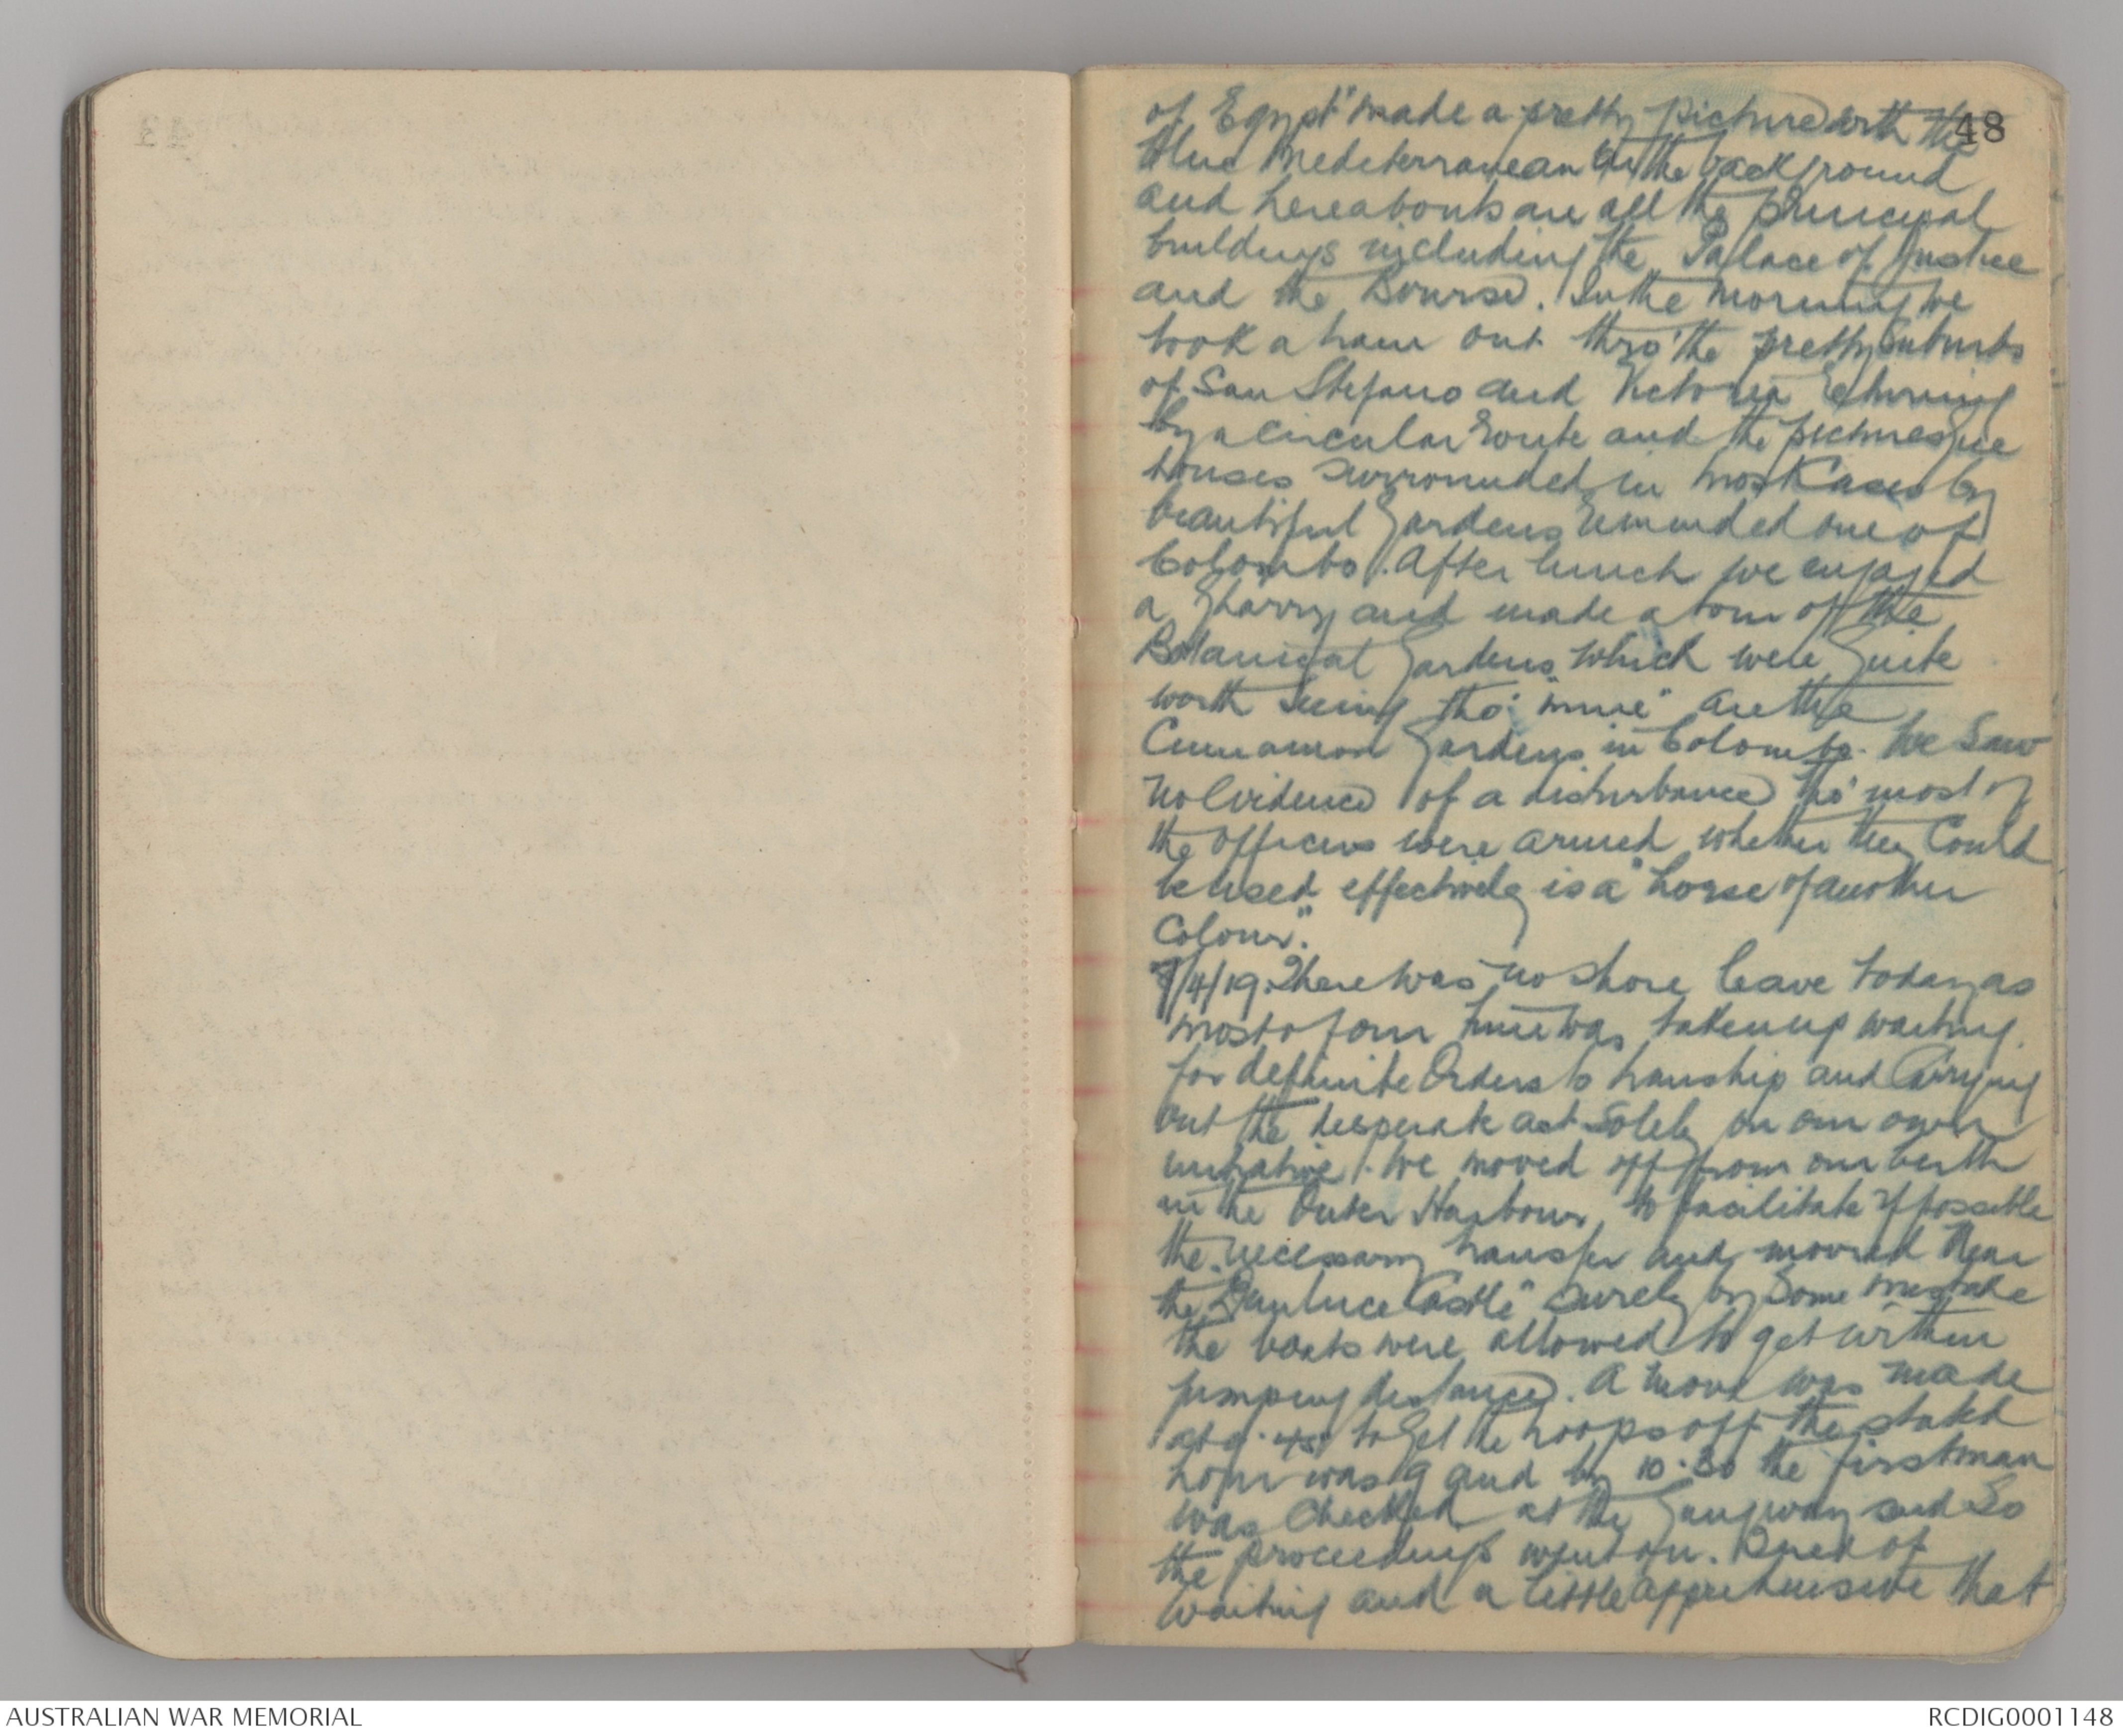 48
of Egypt" made a pretty picture with the
blue Mediterranean in the background
and hereabouts are all the principal
buildings including the Palace of Justice
and the Bourse. In the morning we
took a tram out thro' the pretty suburbs
of San Stefano and Victoria returning
by a circular route and the picturesque
houses surrounded in most cases by
beautiful gardens reminded one of
Colombo. After lunch we engaged
a gharry and made a tour of the
Botanical Gardens which were quite
worth seeing tho' "mine" are the
Cinnamon Gardens in Colombo. We saw
no evidence of a disturbance tho' most of
the officers were armed whether they could
be used effectively is a "horse of another
Colour."
/4/19. There was no shore leave today as
most of our time was taken up waiting
for definite Orders to tranship and Carrying
out the desperate act solely on our own
initiative. We moved off from our berth
in the Outer Harbour to facilitate if possible
the necessary transfer and moored near
the "Dunluce Castle" surely by some mistake
the boats were allowed to get within
jumping distance. A move was made
at 9.45 to get the troops off the stated
hour was 9 and by 10.30 the first man
was checked at the gangway and so
the proceedings went on. Tired of
waiting and a little apprehensive that
AUSTRALIAN WAR MEMORIAL
RCDIG0001148